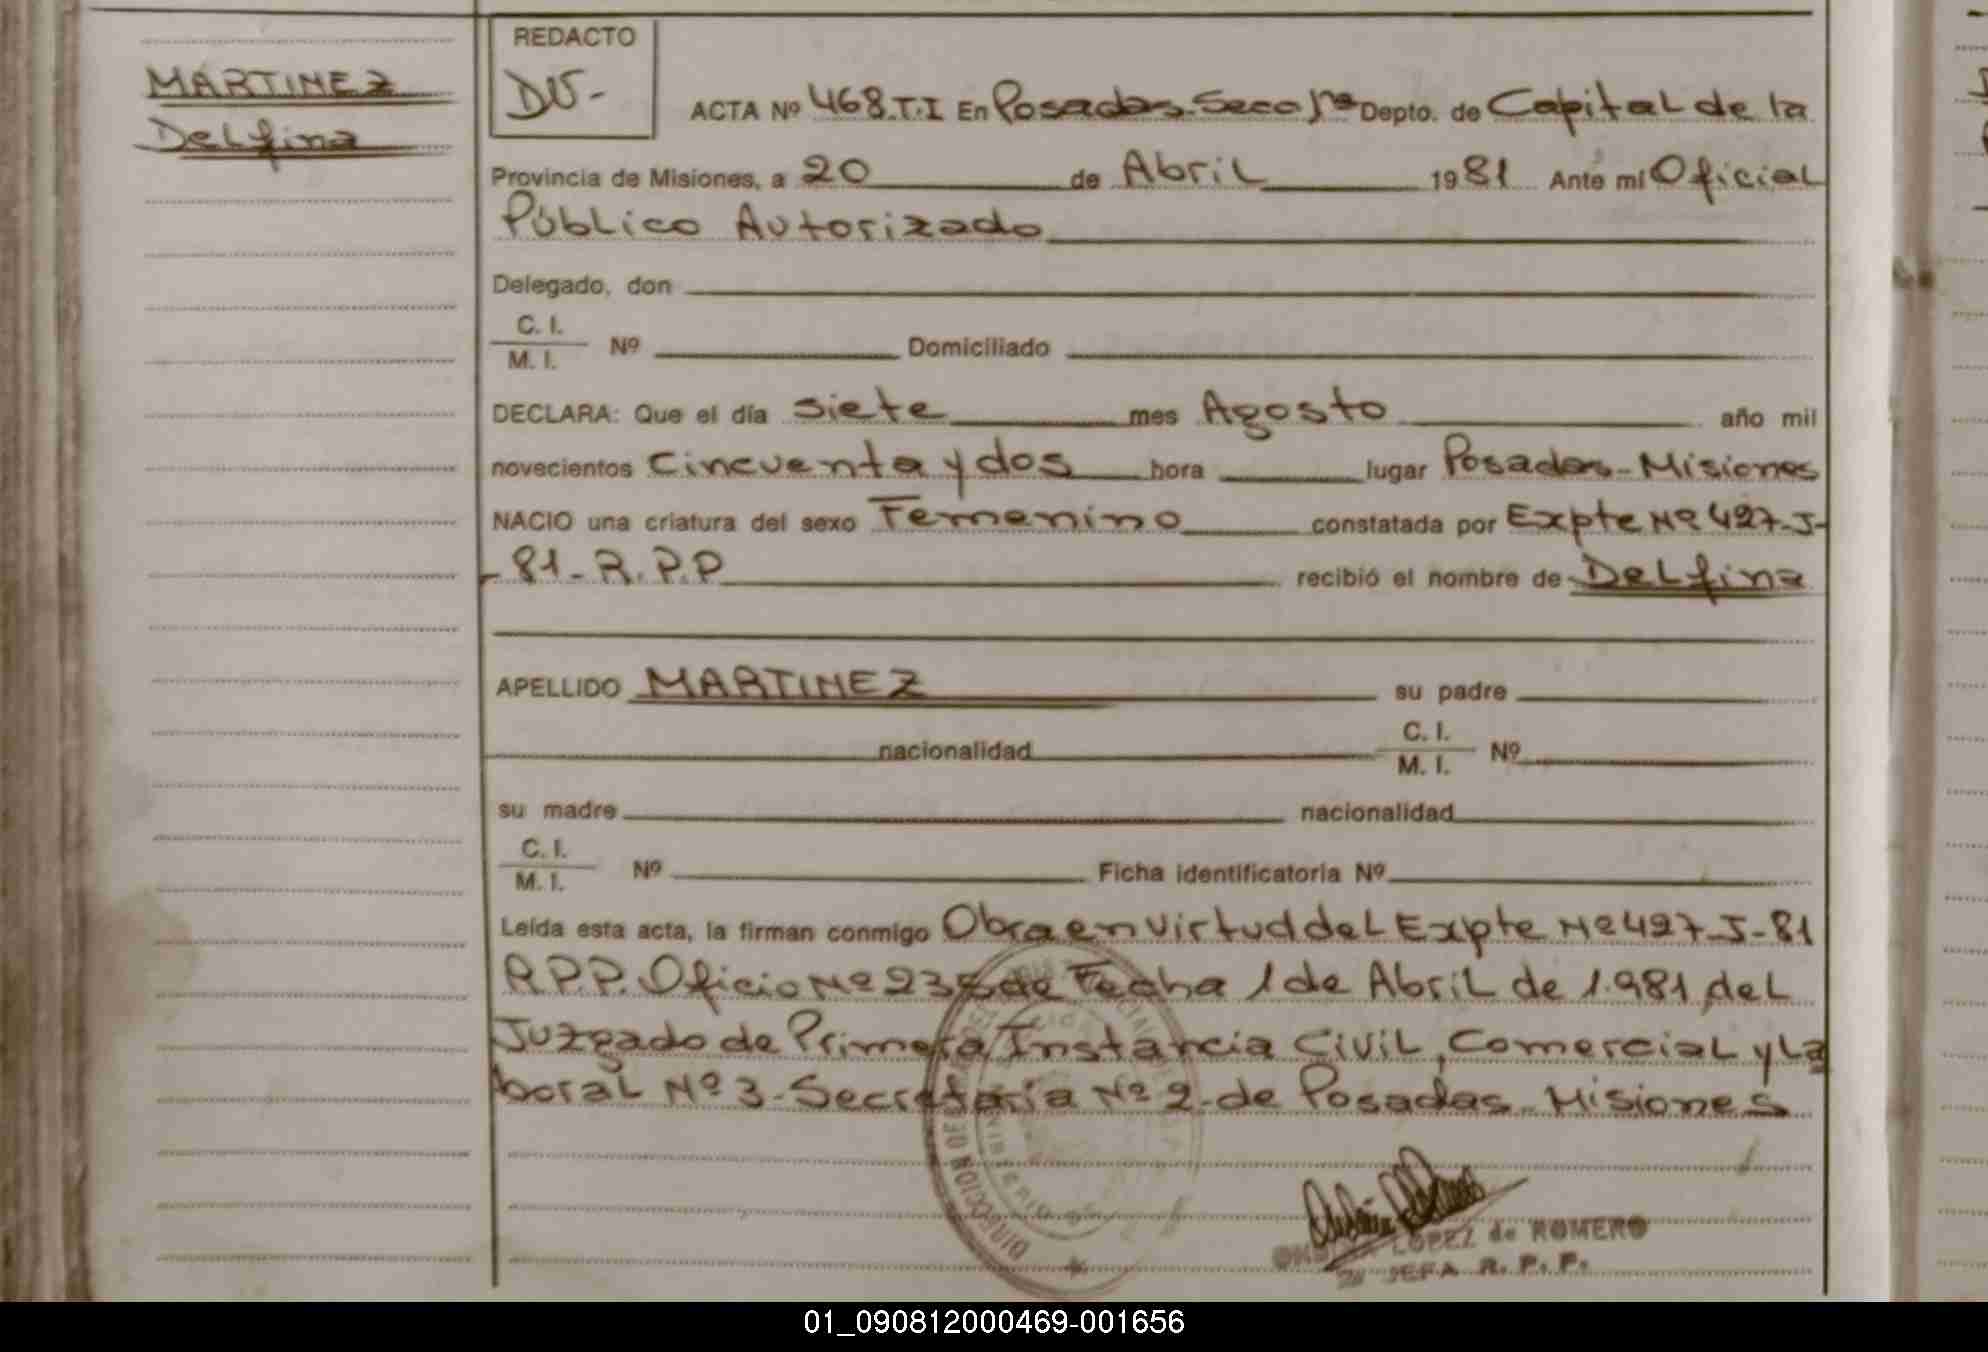 MARTINEZ
Delfina
REDACTO
DV-
ACTA Nº 468.T.I En Posadas-Secc 1ra Depto. de Capital de la
Provincia de Misiones, a 20 de Abril 1981 Ante mí Oficial
Público Autorizado
Delegado, don
C. I.
M. I.
Nº Domiciliado
DECLARA: Que el día siete mes Agosto año mil
novecientos cincuenta y dos hora lugar Posadas-Misiones
NACIO una criatura del sexo Femenino constatada por Expte Nº 427-J-
-81-R.P.P recibió el nombre de Delfina
APELLIDO MARTINEZ su padre
nacionalidad C. I.
M. I. Nº
su madre nacionalidad
C. I.
M. I.
Nº Ficha identificatoria Nº
Leída esta acta, la firman conmigo Obra en virtud del Expte Nº 427-J-81
R.P.P. Oficio Nº 235 de Fecha 1 de Abril de 1.981 del
Juzgado de Primera Instancia Civil, Comercial y La
boral Nº 3-Secretaria Nº 2-de Posadas-Misiones
DIRECCION DE
LOPEZ de ROMERO
JEFA R. P. P.
01_090812000469-001656